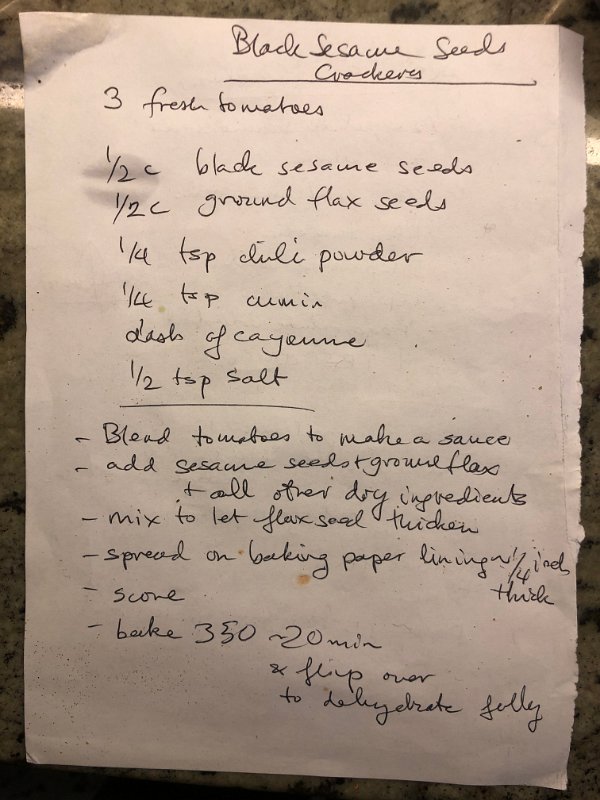 Black Sesame Seeds
Crackers
3 fresh tomatoes
1/2 c black sesame seeds
1/2 c ground flax seeds
1/4 tsp chili powder
1/4 tsp cumin
dash of cayenne
1/2 tsp salt
- Blend tomatoes to make a sauce
- add sesame seeds + ground flax
+ all other dry ingredients
- mix to let flax seed thicken
- spread on baking paper lining ~ 1/4 inch
thick
- score
- bake 350 ~20 min
& flip over
to dehydrate fully